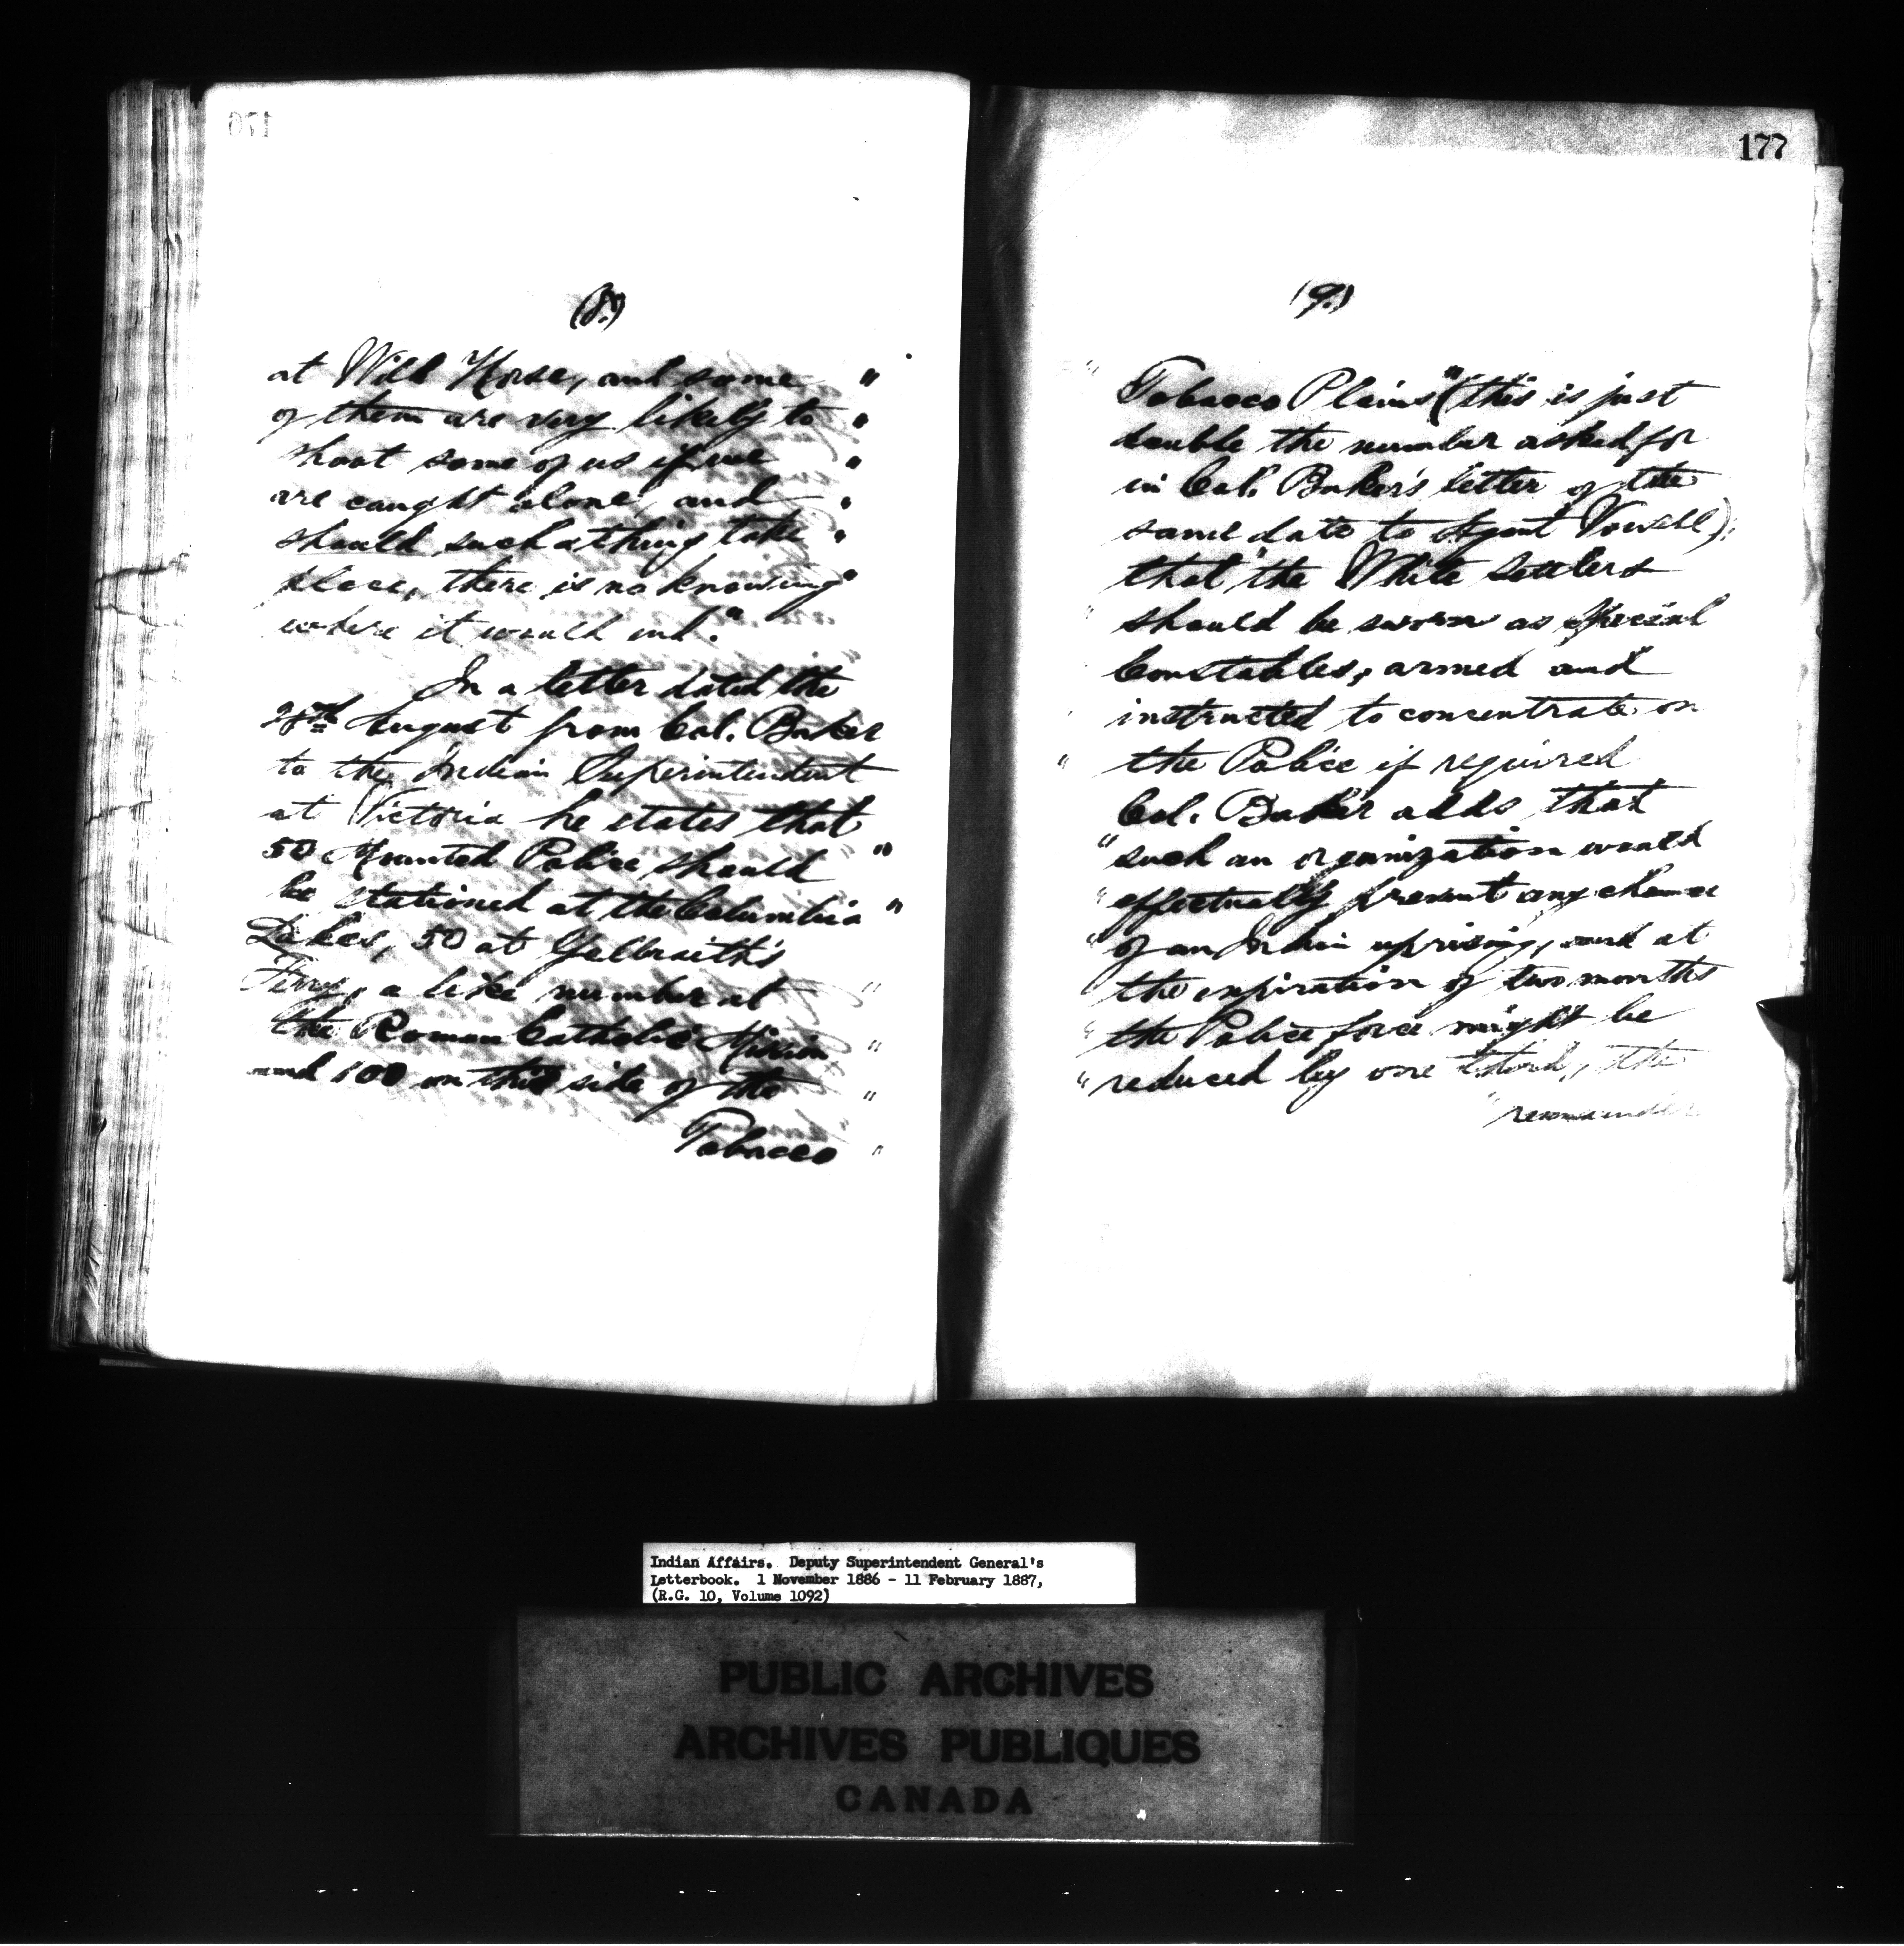 176
(8.)
at Wild Horse, and some "
of them are very likely to "
shoot some of us if we "
are caught alone, and "
should such a thing take "
place, there is no knowing "
where it would end."
In a letter dated the
28th August from Col. Baker
to the Indian Superintendent
at Victoria he states that
50 Mounted Police should "
be stationed at the Columbia "
Lakes, 50 at Galbraith's
Ferry, a like number at "
the Roman Catholic Mission "
and 100 on this side of the "
Tobacco "
177
(9.)
" Tobacco Plains" (this is just
double the number asked for
in Col. Baker's letter of the
same date to Agent Vowell);
that "the White Settlers
" should be sworn as Special
" Constables, armed and
" instructed to concentrate on
" the Police if required
Col. Baker adds that
"such an organization would
"effectually prevent any chance
"of an Indian uprising, and at
"the expiration of two months
"the Police force might be
"reduced by one third, the
"remainder
Indian Affairs. Deputy Superintendent General's
Letterbook. 1 November 1886 - 11 February 1887,
(R.G. 10, Volume 1092)
PUBLIC ARCHIVES
ARCHIVES PUBLIQUES
CANADA